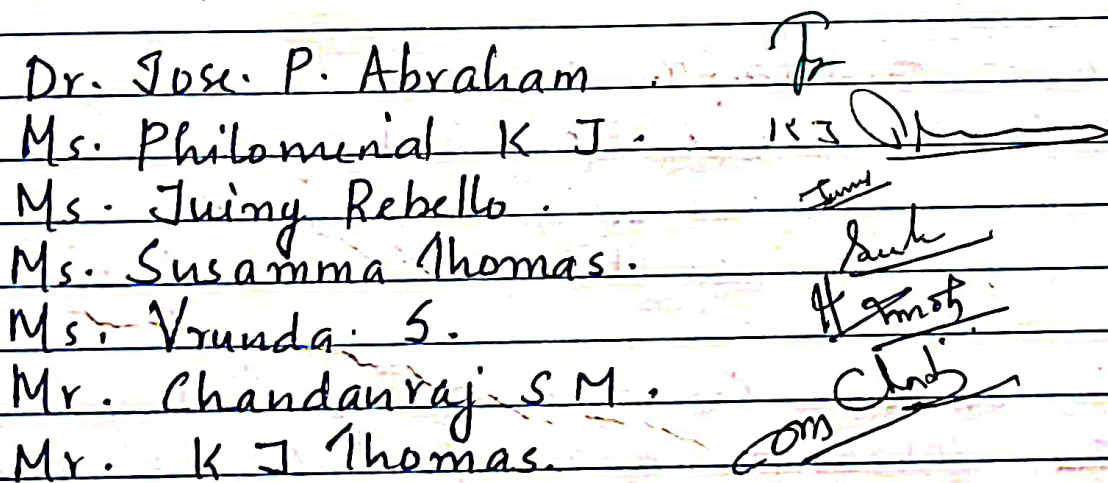 Dr. Jose. P. Abraham .
Ms. Philomenal K J . K J
Ms. Juiny Rebello .
Ms. Susamma Thomas.
Ms. Vrunda. S.
Mr. Chandanraj. S M .
Mr. K J Thomas.